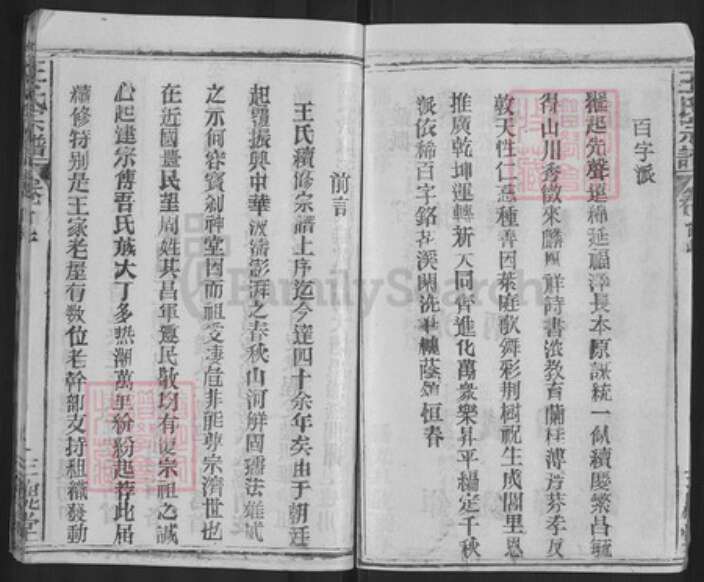 百字派
起先聲遠綿延福澤長本原謀統一似續慶繁昌毓
得山川秀徵來麟鳳祥詩書滋教育蘭桂溥芬芳孝友
敦天性仁慈種善因萊庭歌舞彩荆樹祝生成閭里恩
推廣乾坤運轉新大同肯進化萬衆樂昇平編定千秋
派依稀百字銘花溪閑洗蔭頌恒春
前言
王氏續修宗譜上序迄今達四十余年矣由于朝廷
起覇振興中華波濤澎湃之春秋山河鮮固
之示何容賓剎神堂因而祖受凄危非能尊宗濟世也
在近國疆民望周姓其昌軍邀民敬均有復宗祖之誠
心起建宗傅吾氏族大丁多热潮萬年紛紛起荐此届
續修特別是王家老屋有数位老幹部支持组織發動
王氏宗譜
FamilySearch